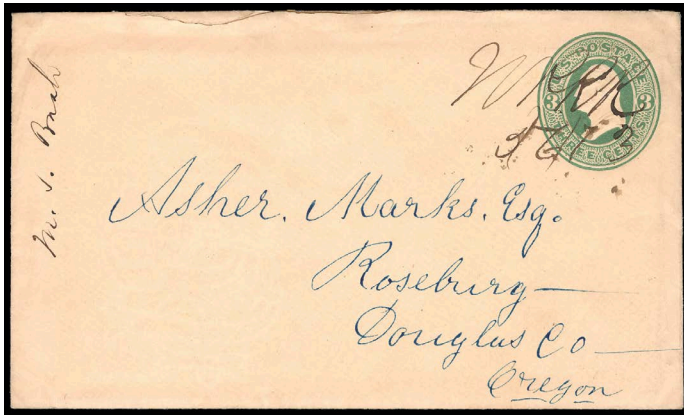 U.S. POSTAGE
3 3
THREE CENTS
Asher. Marks. Esq.
Roseburg—
Douglas Co—
Oregon
M. S.